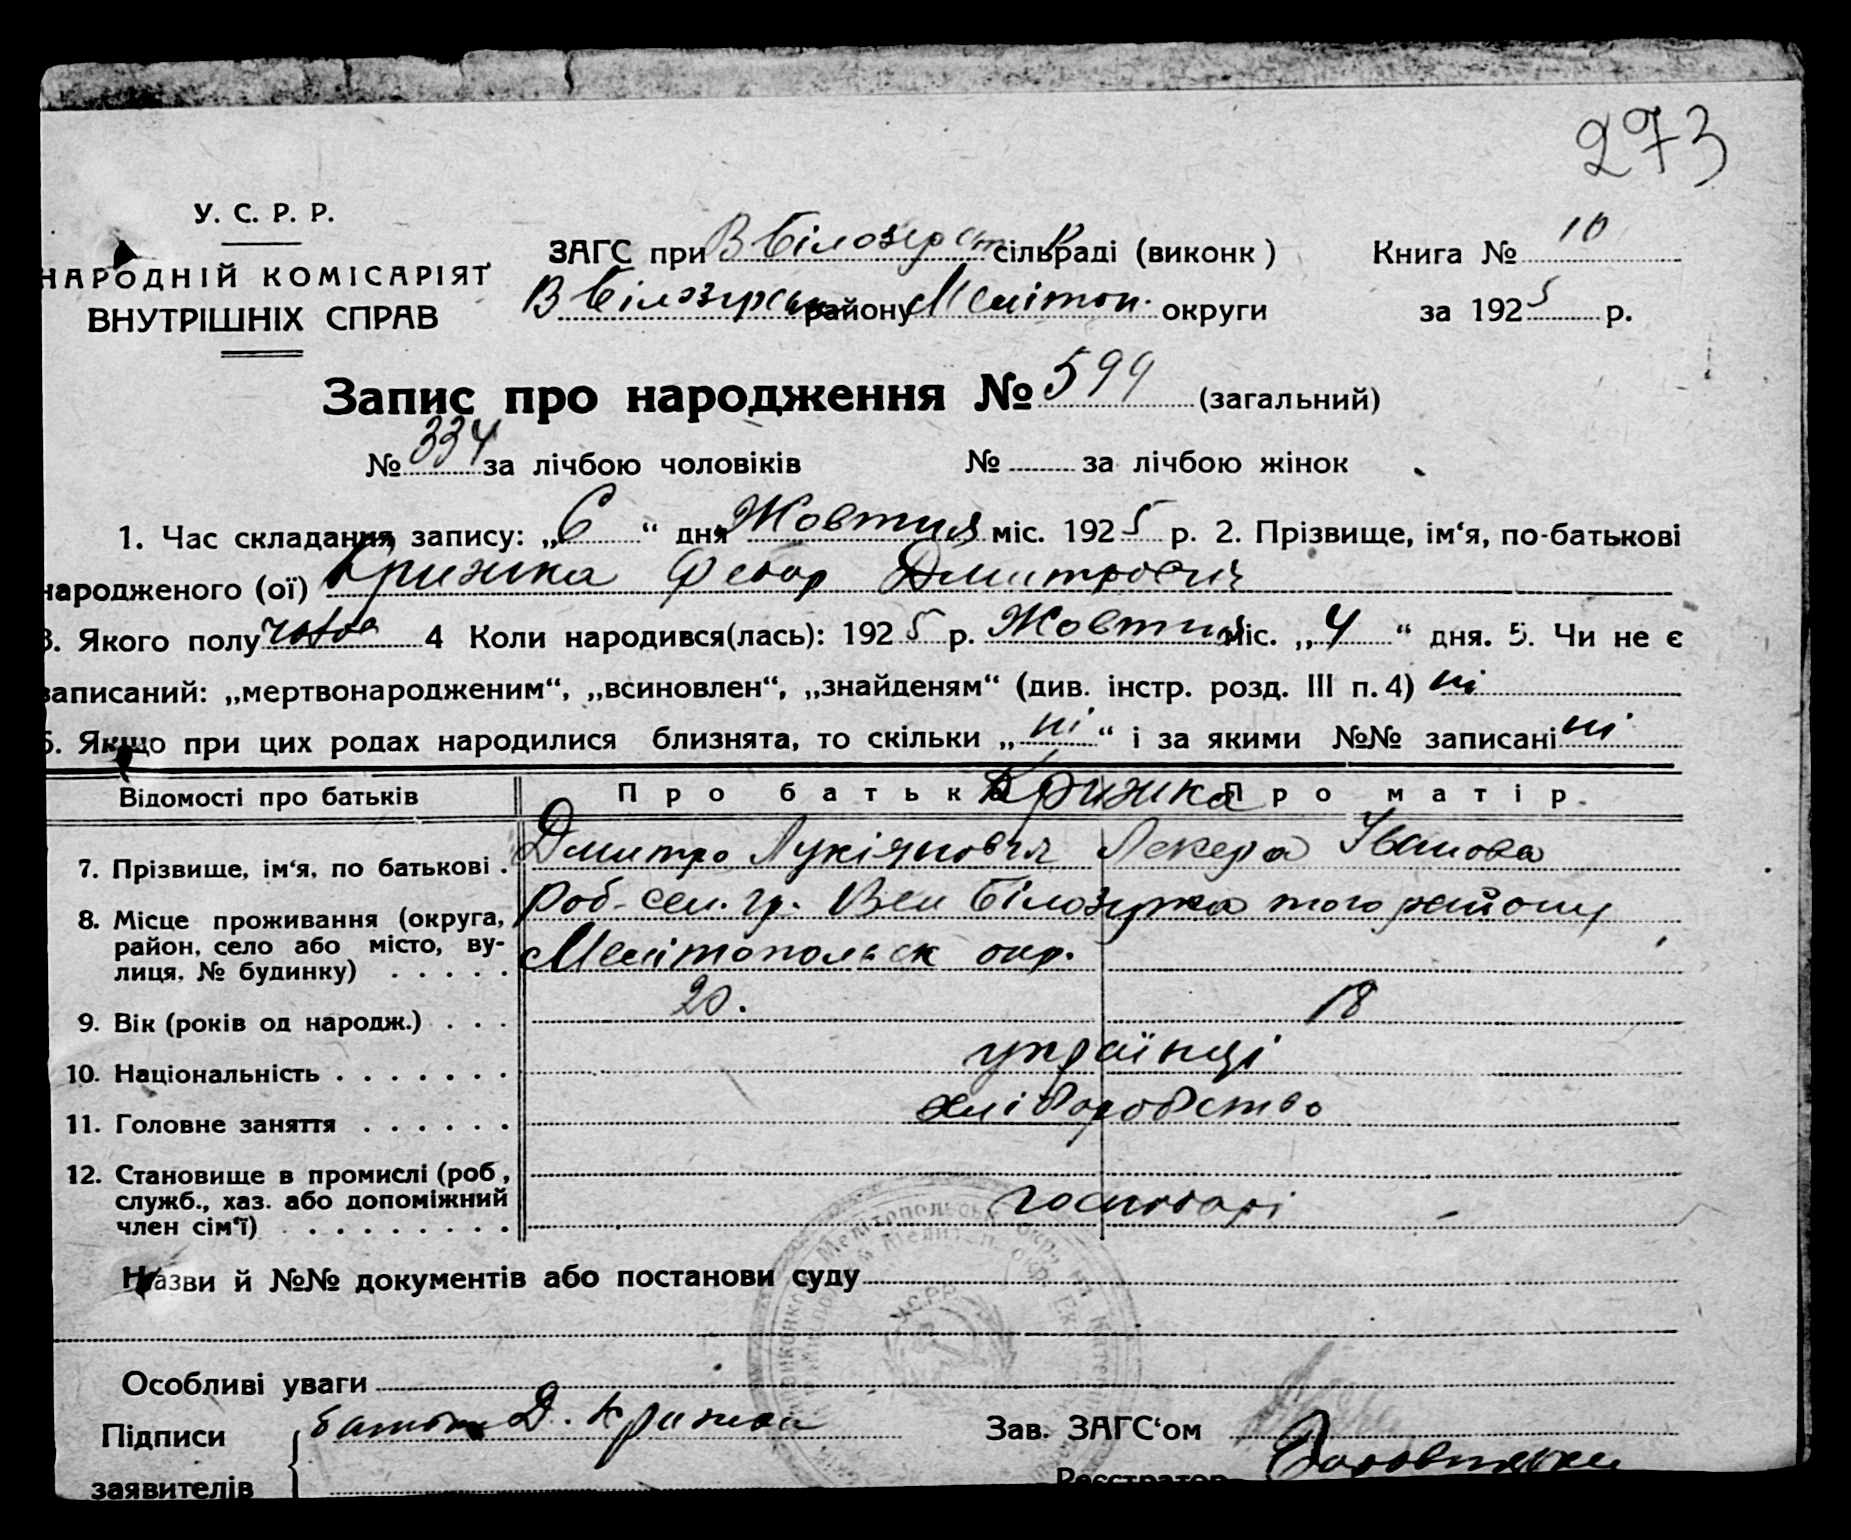 273
У. С. Р. Р.
НАРОДНІЙ КОМІСАРІЯТ
ВНУТРІШНІХ СПРАВ
ЗАГС при В Білозерст сільраді (виконк)
В Білозерськ району Меліт оп. округи
Книга № 10
за 1925 р.
Запис про народження № 599 (загальний)
№ 334 за лічбою чоловіків № за лічбою жінок
1. Час складання запису: „6“ дня Жовтня міс. 1925 р. 2. Прізвище, ім‘я, по-батькові
народженого (ої) Крижка Федор Дмитрович
3. Якого полу чолов 4 Коли народився(лась): 1925 р. Жовтня міс. „4“ дня. 5. Чи не є
записаний: „мертвонародженим“, „всиновлен“, „знайденям“ (див. інстр. розд. III п. 4) ні
6. Якщо при цих родах народилися близнята, то скільки „ні“ і за якими №№ записані ні
Відомості про батьків Про батька Крижка Про матір.
7. Прізвище, ім‘я, по батькові . Дмитро Лукіянович Лекера Іванова
8. Місце проживання (округа, Роб-сел. гр. Вел Білозірка того району
район, село або місто, ву-
лиця, № будинку) . . . . . Мелітопольск окр.
9. Вік (років од народж.) . . . 20. 18
10. Національність . . . . . . . українці
11. Головне заняття . . . . . . хліборобство
12. Становище в промислі (роб,
служб., хаз. або допоміжний господарі
член сім‘ї) . . . . . . . . .
Назви й №№ документів або постанови суду
УСРР
Особливі уваги
Підписи батько Д. Крижка
заявителів
Зав. ЗАГС‘ом
Реєстратор